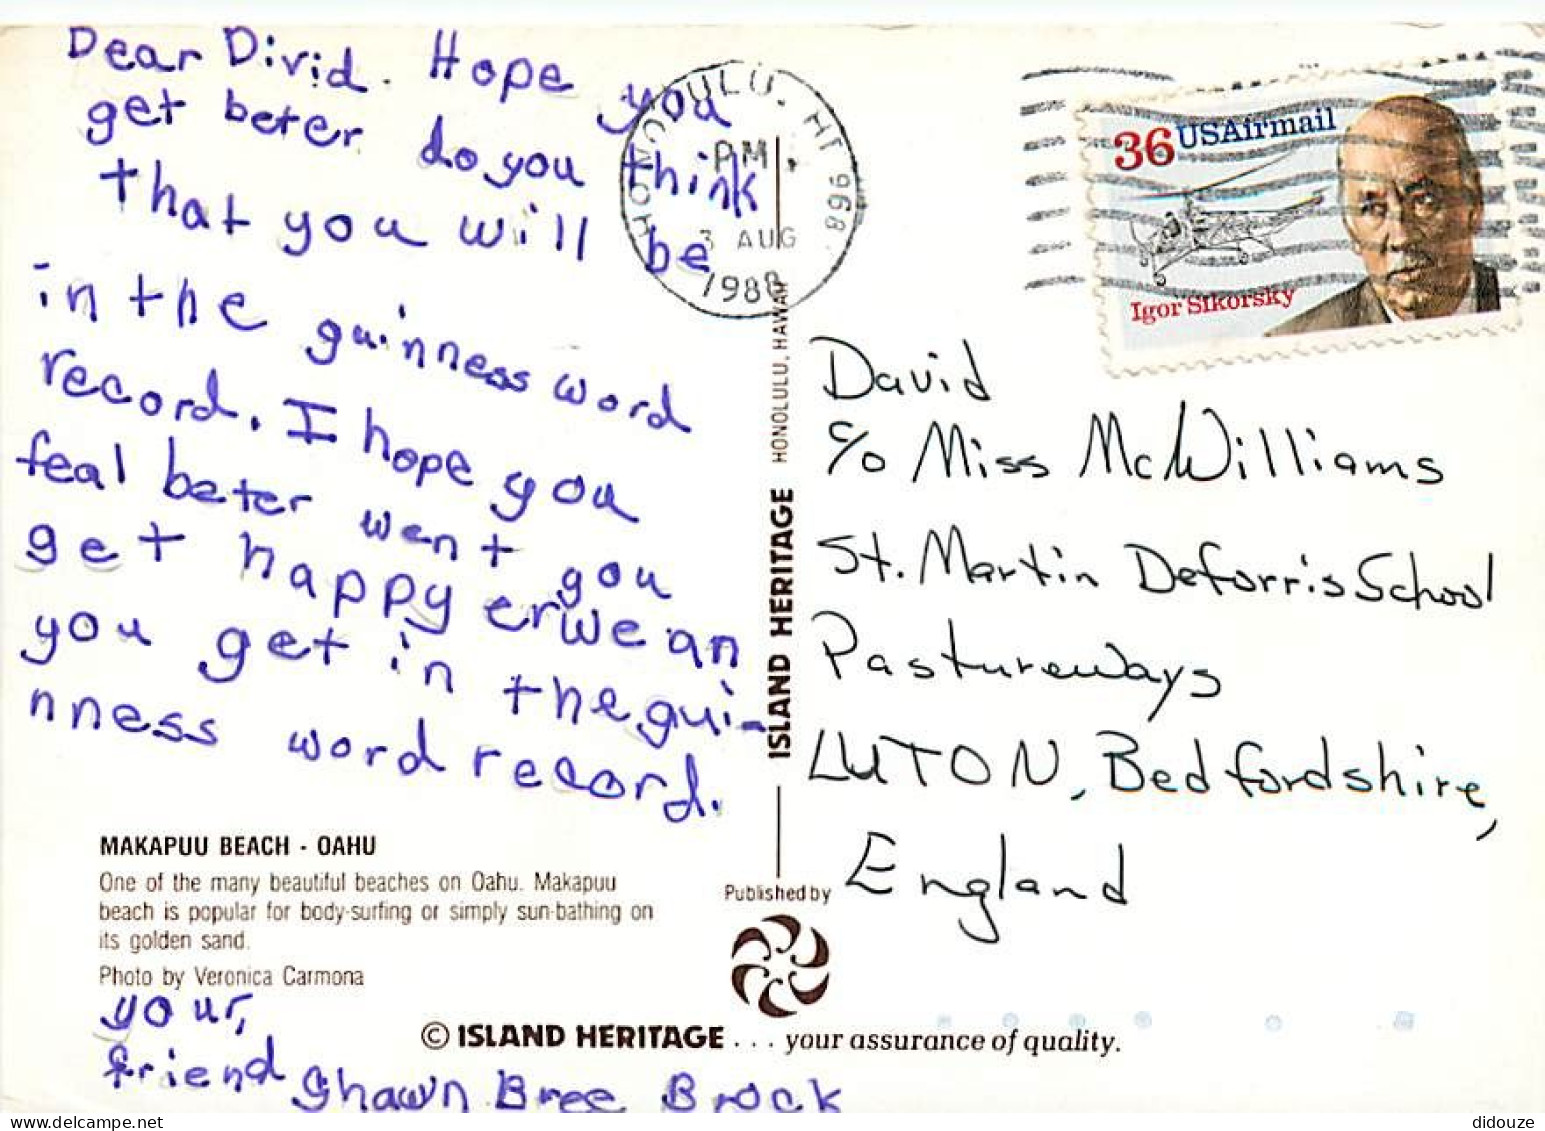 Dear Divid. Hope you
get beter do you think
that you will be
in the guinness word
record. I hope you
feal beter went you
get happy erwe an
you get in the gui-
nness word record.
MAKAPUU BEACH - OAHU
One of the many beautiful beaches on Oahu. Makapuu
beach is popular for body-surfing or simply sun-bathing on
its golden sand.
Photo by Veronica Carmona
your,
friend Shawn Bree Brock
HONOLULU, HI 968
PM
3 AUG
1988
36 USAirmail
Igor Sikorsky
ISLAND HERITAGE HONOLULU, HAWAII
David
c/o Miss McWilliams
St. Martin Deforris School
Pastureways
LUTON, Bedfordshire,
England
Published by
© ISLAND HERITAGE . . . your assurance of quality.
www.delcampe.net
didouze